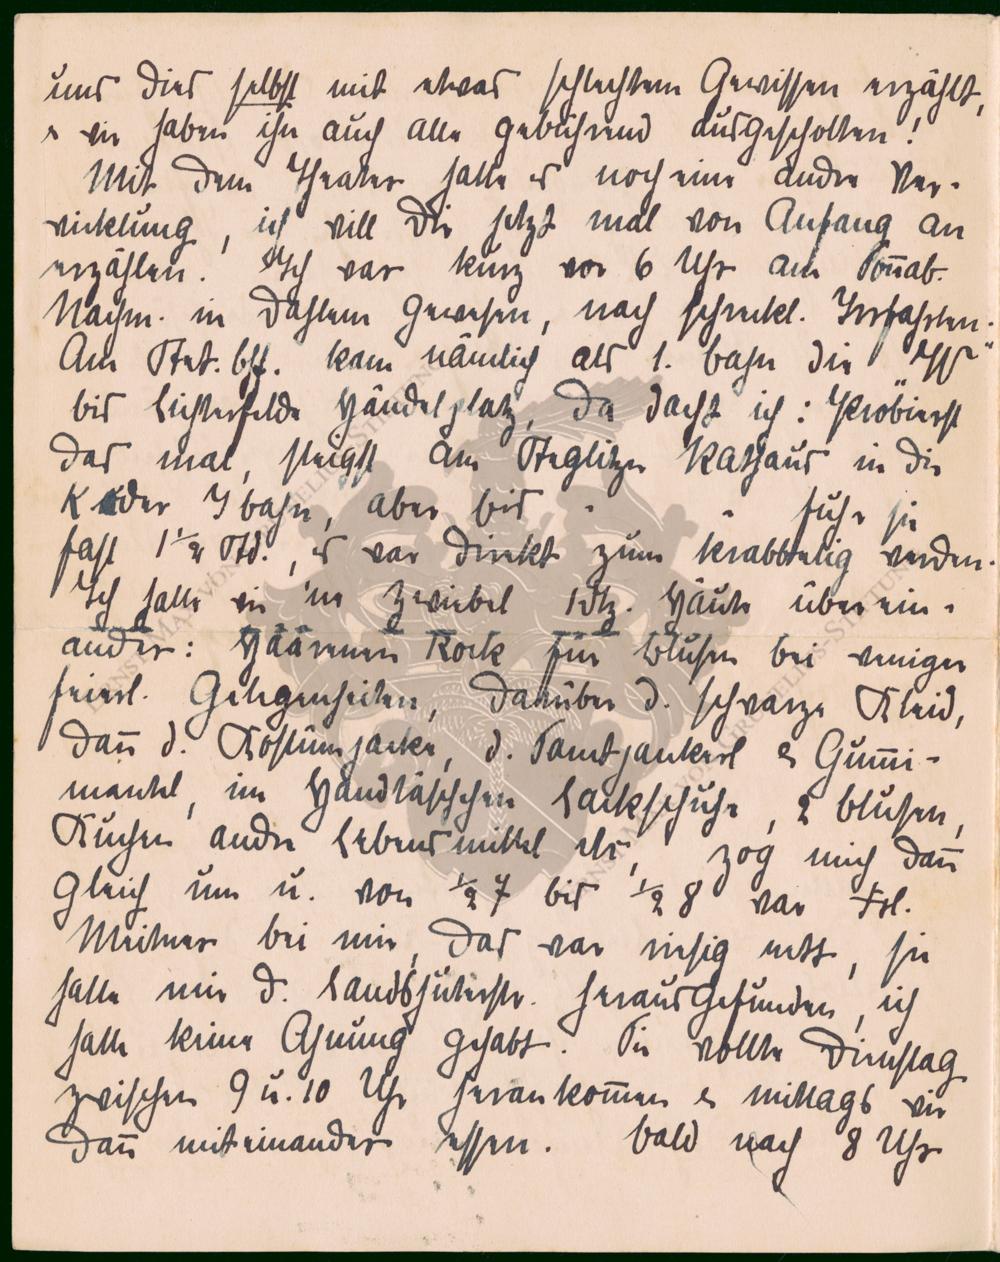 uns dies selbst mit etwas schlechtem Gewissen erzählt,
& wir haben ihn auch alle gebührend ausgescholten!
Mit dem Theater hatte es noch eine andre Ver-
wicklung, ich will Dir jetzt mal von Anfang an
erzählen. Ich war kurz vor 6 Uhr am Soñab.
Nachm. in Dahlem gewesen, nach schreckl. Irrfahrten.
Am Stet. Bhf. kam nämlich als 1. Bahn die
bis Lichterfelde Händelplatz, da dacht ich: Pröbierst
das mal, steigst am Steglitzer Rathaus in die
K oder Y bahn, aber bis " " fuhr sie
fast 1 1/2 Std., es war direkt zum krabbelig werden.
Ich hatte wie 'ne Zwiebel 1 Dtz. Häute überein-
ander: Häärenen Rock für Blusen bei weniger
feierl. Gelegenheiten, darüber d. schwarze Kleid,
dañ d. Kostümjacke, d. Samtjankerl & Gum̃i-
mantel, im Handtäschchen Lackschuhe, 2 Blusen,
Kuchen andre Lebensmittel etc, zog mich dañ
gleich um u. von 1/2 7 bis 1/2 8 war Frl.
Meitner bei mir, das war riesig nett, sie
hatte mir d. Landshuterstr. herausgefunden, ich
hatte keine Ahnung gehabt. Sie wollte Dienstag
zwischen 9 u. 10 Uhr herankom̃en & mittags wir
dañ miteinander essen. Bald nach 8 Uhr